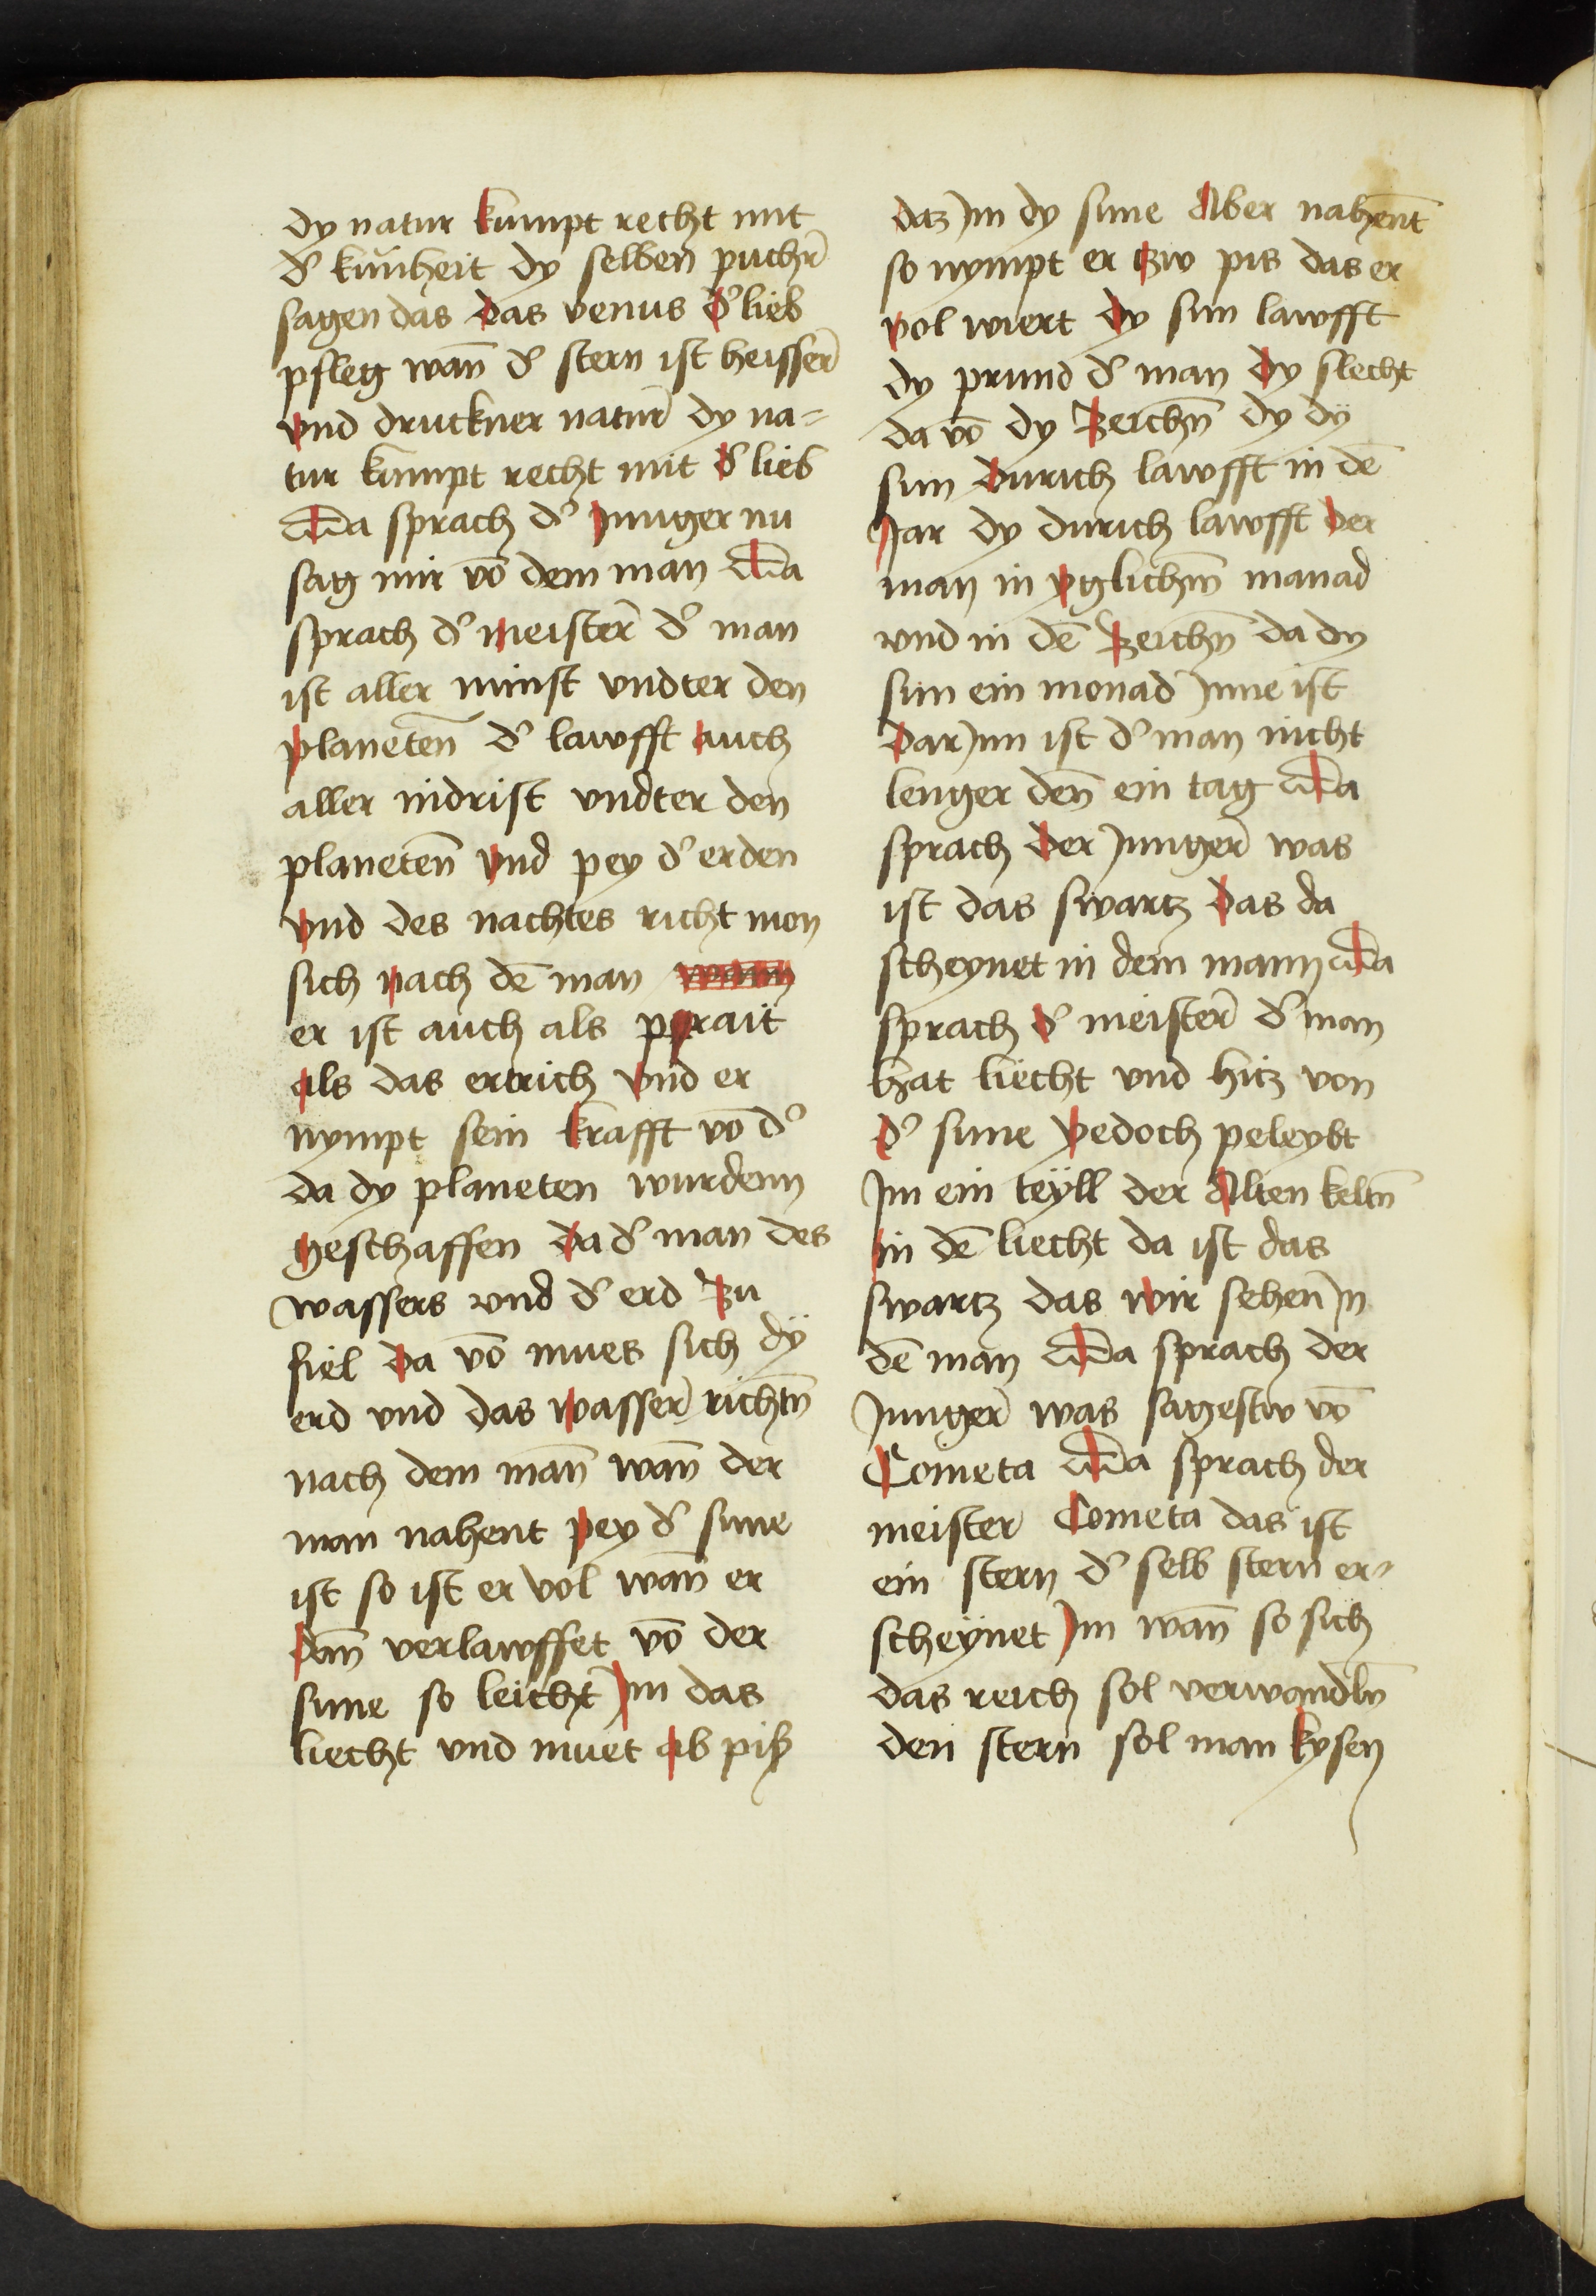 dy natur kumpt recht mit
d' kunheit dy selben puch̄r
sagen das das venus d' lieb
pfleg wan̄ d' stern ist heisser̄
vnd druckner natur̄ dy na=
tur kumpt recht mit d' lieb
Da sprach d' Junger nu
sag mir vō dem man Da
sprach d' meister̄ d' man
ist aller minst vndter den
planeten̄ d' lawfft auch
aller nidrist vndter den
planeten̄ vnd pey d' erden
vnd des nachtes richt mon
sich nach dē man wann
er ist auch als prait
als das ertrich vnd er
nympt sein krafft vō d'
da dy planeten wurdenn
geschaffen da d' man des
wassers vnd d' erd zu
fiel da vō mues sich dÿ
erd vnd das wasser̄ richtn̄
nach dem man̄ wan̄ der
man nahent pey d' sune
ist so ist er vol wan̄ er
dan̄ verlawffet vō der
sune so leicht Jm das
liecht vnd muet ab piß
datz Jm dy sune Aber nahen̄t
so nympt er zw pis das er
vol wiert dy sun lawfft
dy prund d' man dy slecht
da vō dy Zeichn̄ dy dÿ
sun durich lawfft in dē
Jar dy durich lawfft der
man in yglichn̄ manad
vnd in dē Zeichn̄ da dy
sun ein monad Jnne ist
dar Jnn ist d' man nicht
lenger den̄ ein tag Da
sprach der Junger̄ was
ist das swartz das da
scheynet in dem mann Da
sprach d' meister̄ d' man
hat liecht vnd hitz von
d' sune yedoch peleybt
Jm ein teÿll der Alten keltn̄
in dē liecht da ist das
swartz das wir sehen̄ Jn
dē man Da sprach der
Junger̄ was sagestw vō
Cometa Da sprach der
meister Cometa das ist
ein stern d' selb stern er=
scheÿnet Jm wan̄ so sich
das reich sol verwandln̄
den stern sol man kysen